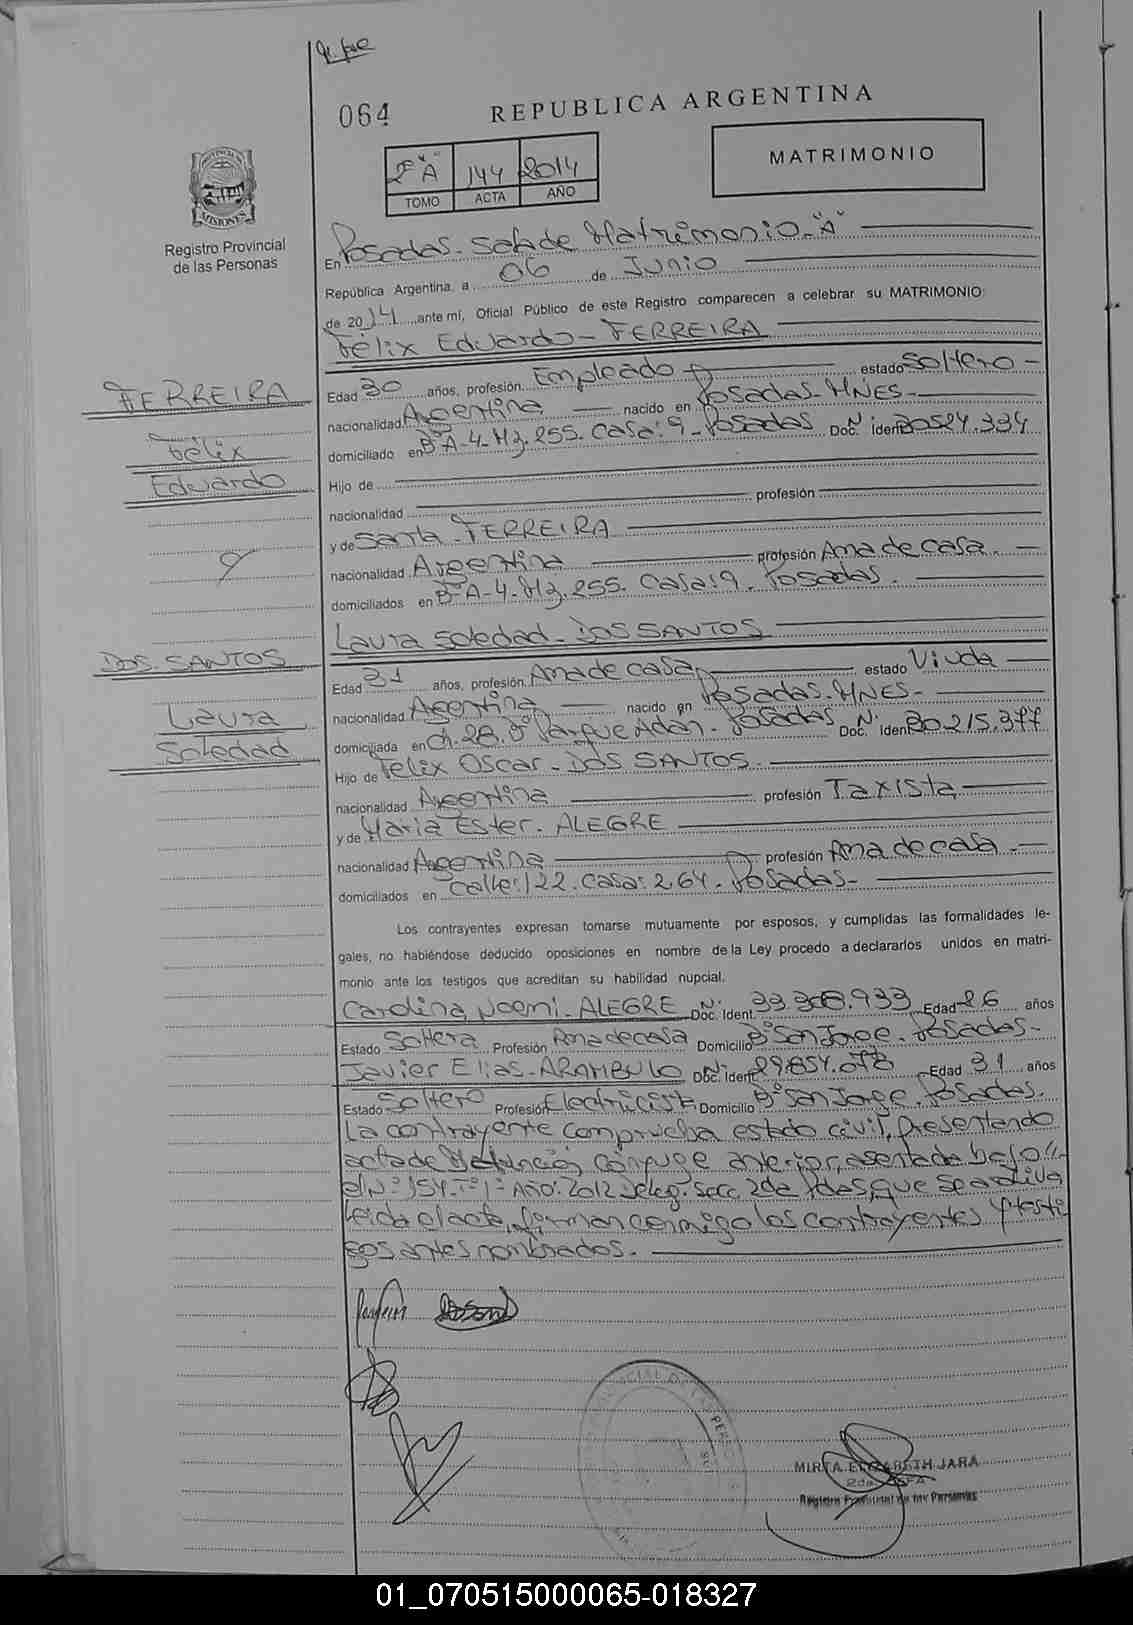 064
REPUBLICA ARGENTINA
MATRIMONIO
2º "A" 144 2014
TOMO ACTA AÑO
PROVINCIA DE
MISIONES
Registro Provincial
de las Personas
En Posadas - Sala de Matrimonio - "A"
República Argentina, a 06 de Junio
de 2014 ante mí, Oficial Público de este Registro comparecen a celebrar su MATRIMONIO:
Félix Eduardo - FERREIRA
FERREIRA
Félix
Eduardo
Edad 30 años, profesión Empleado estado Soltero -
nacionalidad Argentina nacido en Posadas - MNES -
domiciliado en Bº A-4-Mz. 255. Casa: 9 - Posadas Doc. Iden Nº: 30524.334
Hijo de
nacionalidad profesión
y de Santa - FERREIRA
nacionalidad Argentina profesión Ama de casa. -
domiciliados en Bº A-4-Mz. 255. Casa: 9. Posadas.
Laura Soledad - DOS SANTOS
DOS. SANTOS
Laura
Soledad
Edad 31 años, profesión Ama de casa estado Viuda
nacionalidad Argentina nacido en Posadas - MNES -
domiciliada en Ch. 28. Bº Parque Adan - Posadas Doc. Iden Nº: 30.215.377
Hijo de Felix Oscar - DOS SANTOS.
nacionalidad Argentina profesión Taxista
y de Maria Ester. ALEGRE
nacionalidad Argentina profesión Ama de casa. -
domiciliados en Calle: 122. Casa: 264. Posadas -
Los contrayentes expresan tomarse mutuamente por esposos, y cumplidas las formalidades le-
gales, no habiéndose deducido oposiciones en nombre de la Ley procedo a declararlos unidos en matri-
monio ante los testigos que acreditan su habilidad nupcial.
Carolina Noemi - ALEGRE Doc. Ident. Nº: 33.308.933 Edad 26 años
Estado Soltera Profesión Ama de casa Domicilio Bº San Jorge. Posadas -
Javier Elias - ARAMBULO Doc. Ident. Nº: 29.854.078 Edad 31 años
Estado Soltero Profesión Electricista Domicilio Bº San Jorge. Posadas.
La contrayente comprueba estado civil, presentando
acta de defunción cónyuge anterior, asentada bajo
el Nº: 154. Tº: 1º Año: 2012 Deleg. Secc. 2da Pdas, que se archiva
Leida el acta, firman conmigo los contrayentes y testi
gos antes nombrados.
MIRTA ELIZABETH JARA
2da. JEFA
Registro Provincial de las Personas
01_070515000065-018327